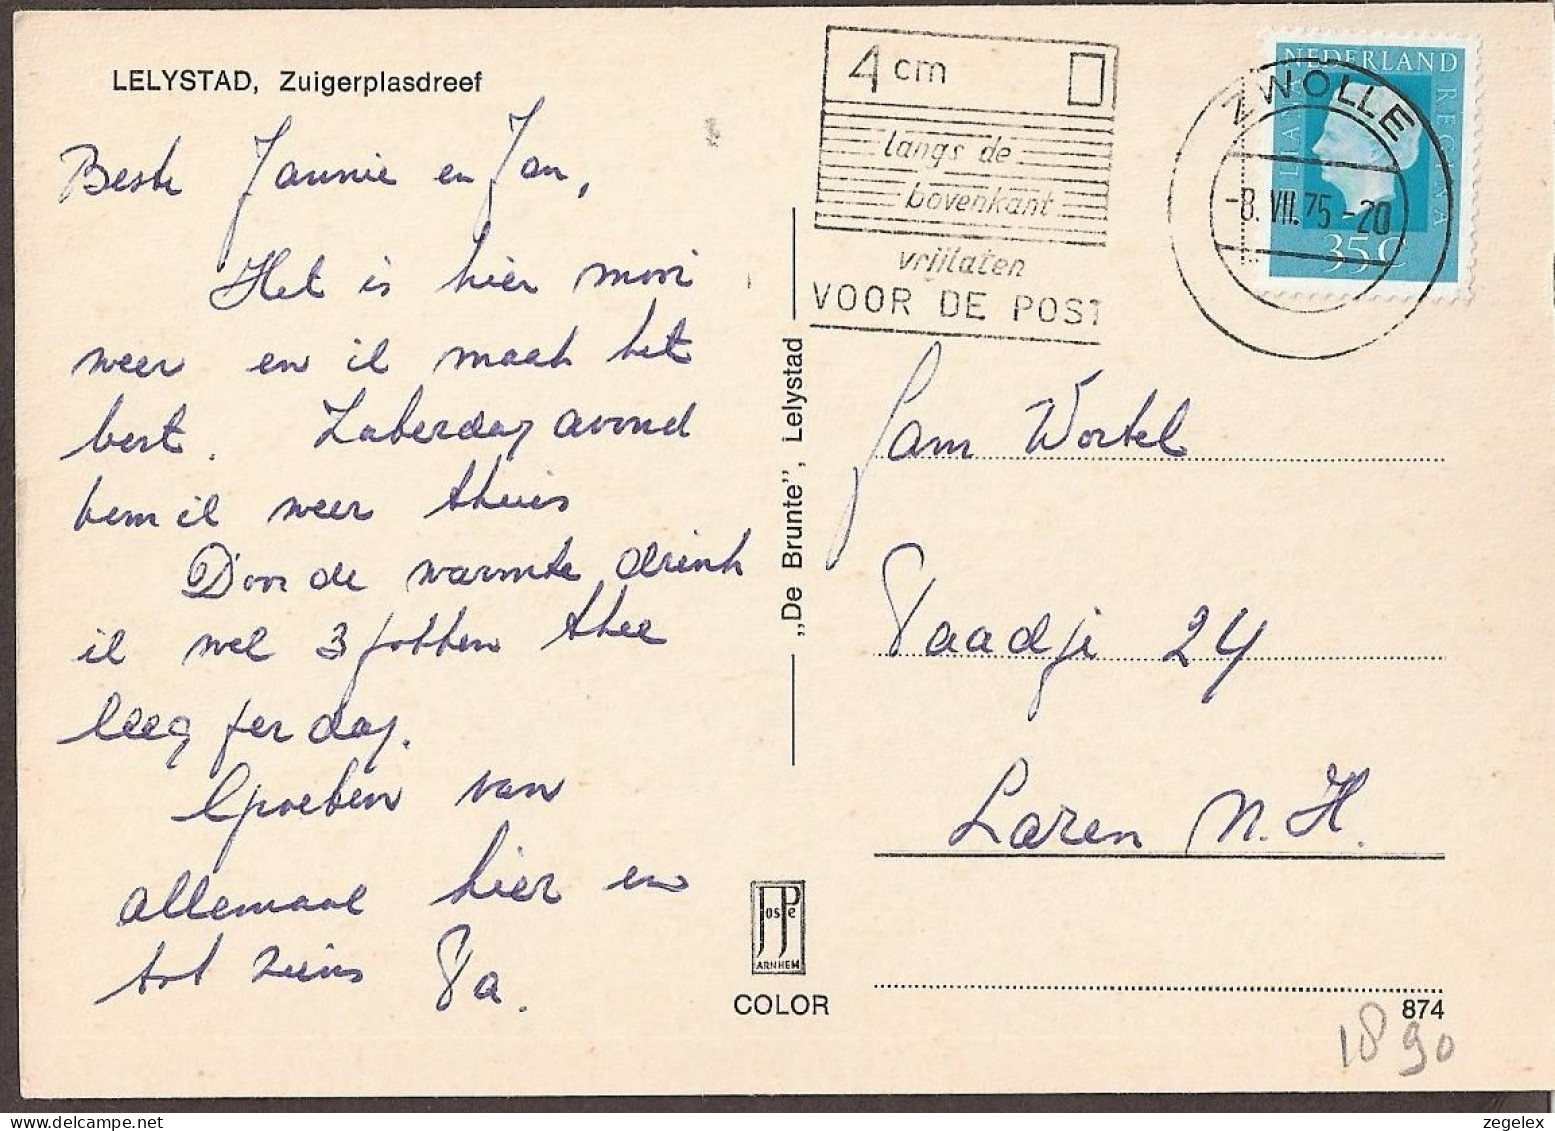 LELYSTAD, Zuigerplasdreef
Beste Jannie en Jan,
Het is hier mooi
weer en ik maak het
best. Zaterdag avond
ben ik weer thuis
Door de warmte drink
ik wel 3 potten thee
leeg per dag.
Groeten van
allemaal hier en
tot ziens Pa.
„De Brunte”, Lelystad
JosPe
ARNHEM
COLOR
4 cm
langs de
bovenkant
vrijlaten
VOOR DE POST
NEDERLAND
JULIANA REGINA
35 C
ZWOLLE
-8.VII.75-20
Fam Wortel
Paadje 24
Laren N.H.
874
1890
zegelex